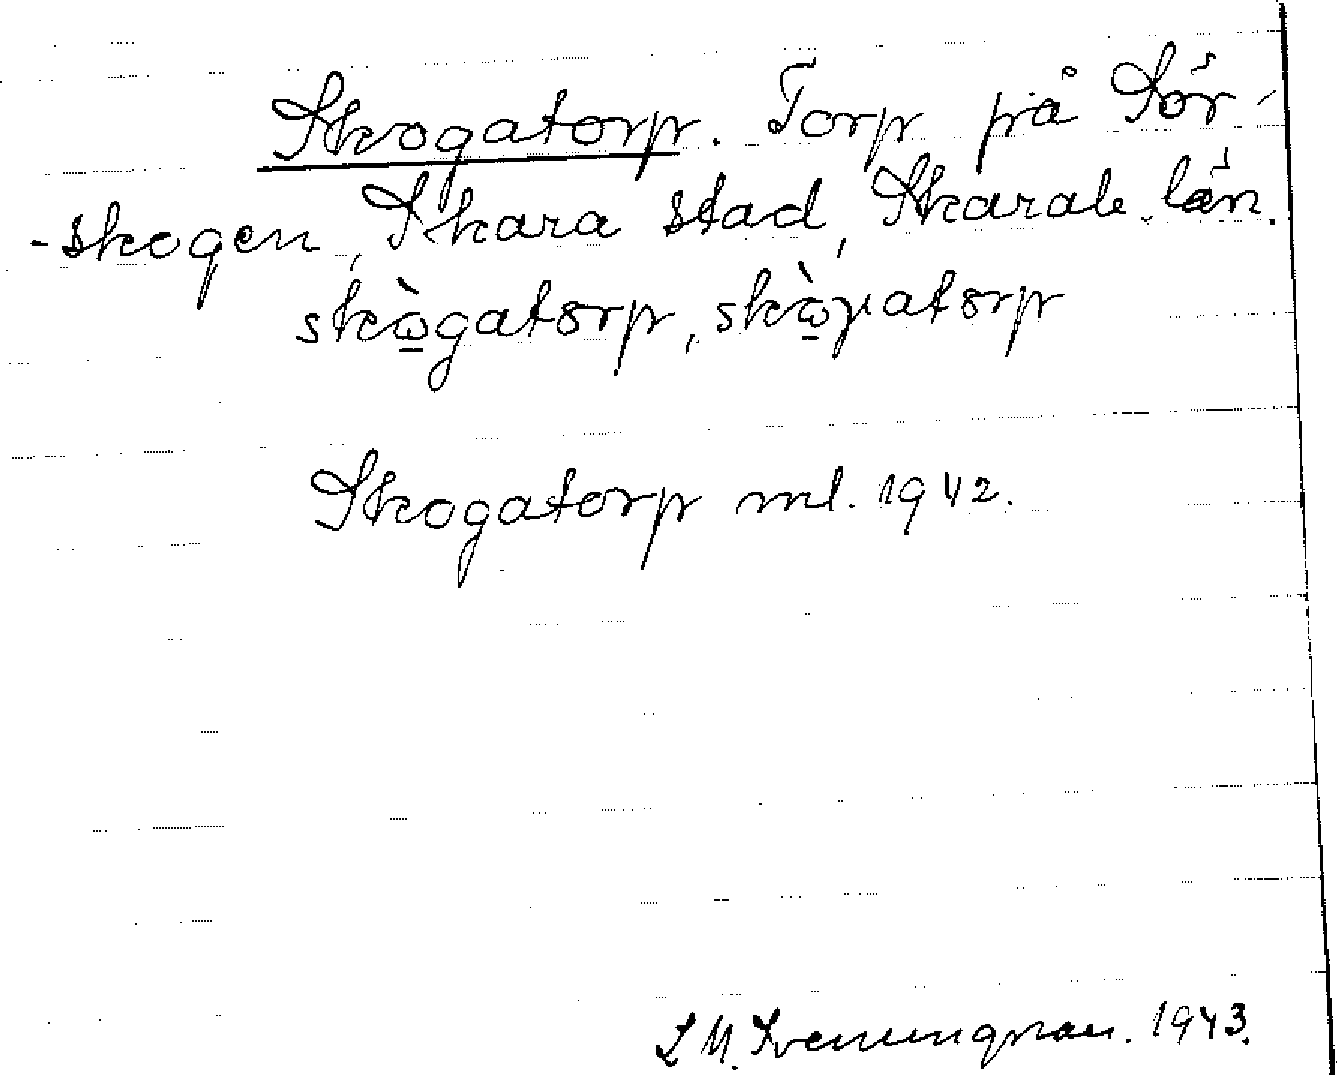 Skogatorp. Torp på Sör-
-skogen, Skara stad, Skarab. län.
skògatorp, skòγatorp
Skogatorp ml. 1942.
1943.